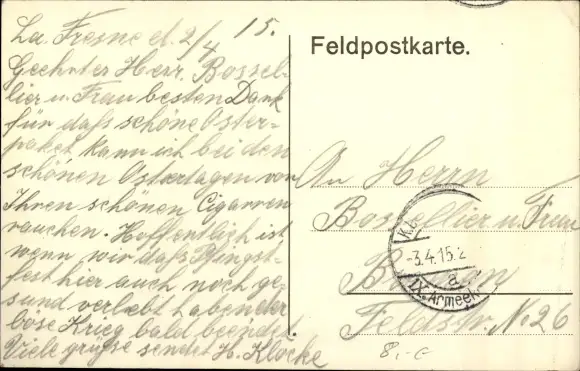 La Fresne d. 2/4 15.
Geehrter Herr Bossel-
lier u. Frau besten Dank
für daß schöne Oster-
paket, kann ich bei den
schönen Ostertagen von
Ihren schönen Cigarren
rauchen. Hoffentlich ist
wenn wir daß Pfingst-
fest hier auch noch ge-
sund verlebt haben der
böse Krieg bald beendet.
Viele grüße sendet H. Klocke
Feldpostkarte.
An Herrn
Bossellier u. Frau
Feldstr. No 26
-3.4.15.
a
IX. Armeek.
8,- G